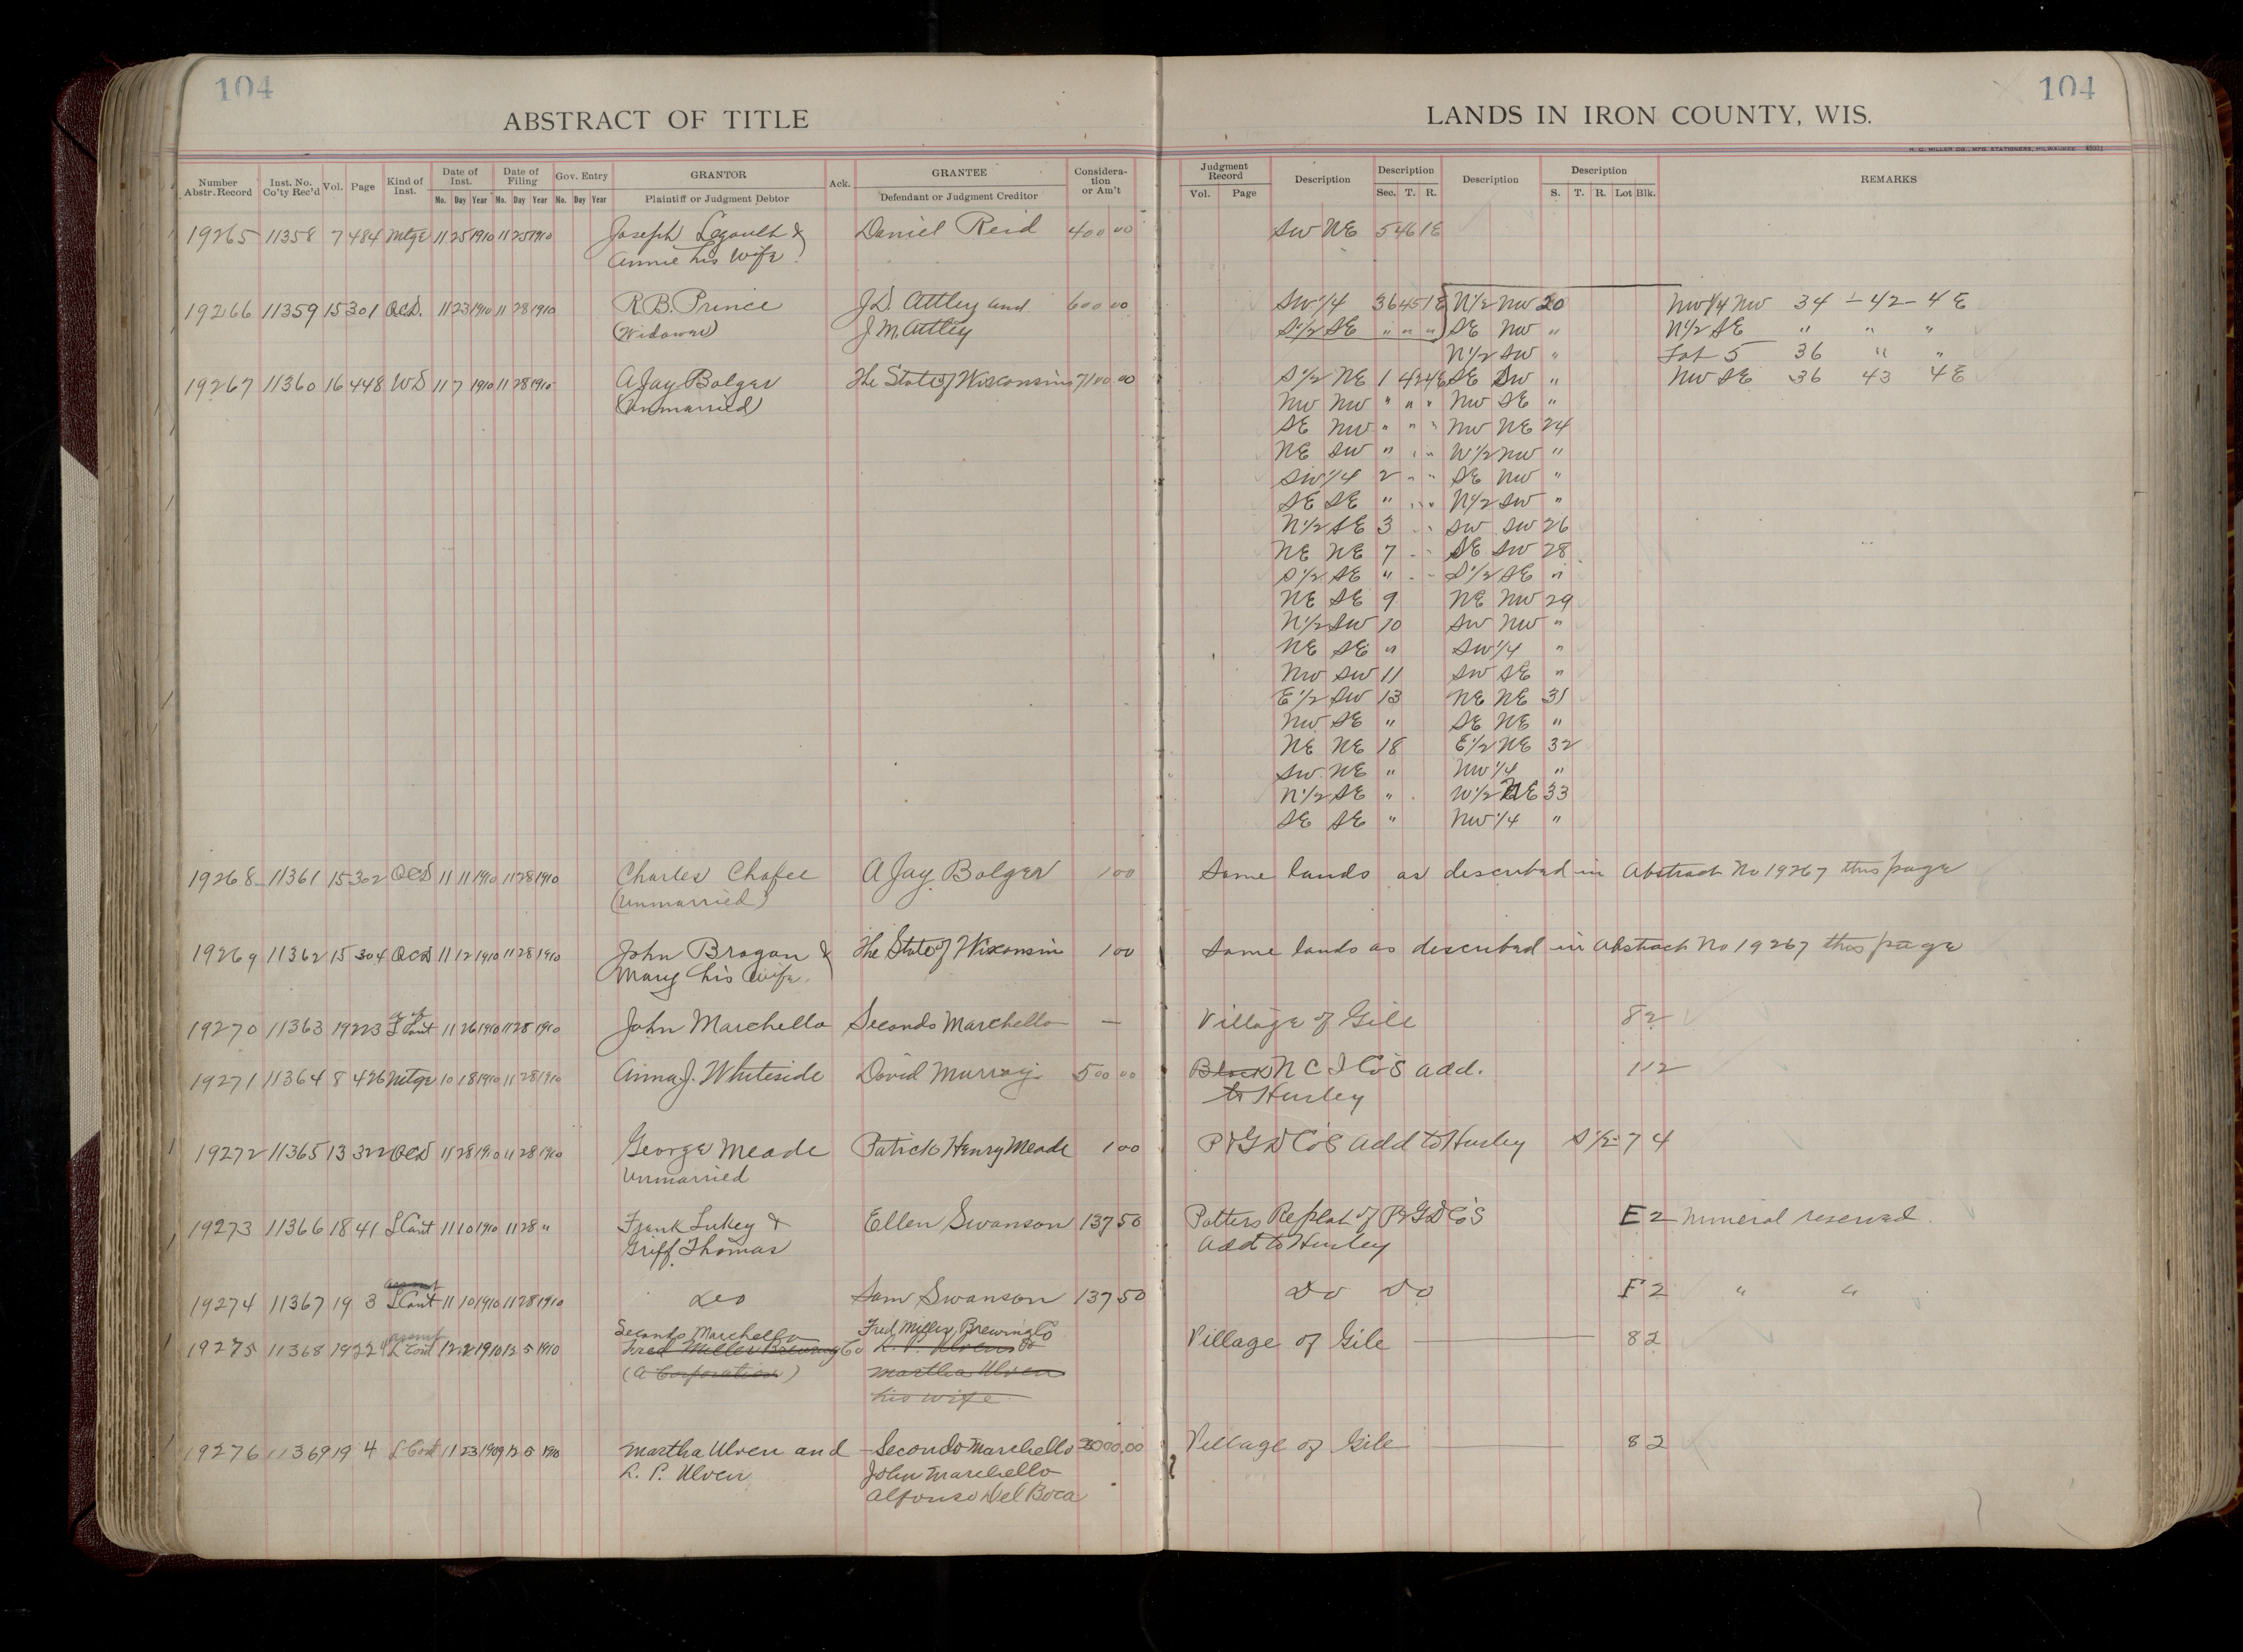 104
104
ABSTRACT OF TITLE
LANDS IN IRON COUNTY, WIS.
H. C. MILLER CO., MFG. STATIONERS, MILWAUKEE
Number Abstr. Record Inst. No. Co'ty Rec'd Vol. Page Kind of Inst. Date of Inst. Mo. Day Year Date of Filing Mo. Day Year Gov. Entry Mo. Day Year GRANTOR Plaintiff or Judgment Debtor Ack. GRANTEE Defendant or Judgment Creditor Considera- tion or Am't
Judgment Record Vol. Page Description Description Sec. T. R. Description Description S. T. R. Lot Blk. REMARKS
19265 11358 7 484 Mtge 11 25 1910 11 25 1910 Joseph Legault & Daniel Reid 400 00 SW NE 5 46 1E
Annie his wife
19266 11359 15 301 QCD. 11 23 1910 11 28 1910 R.B. Prince J.D. Attley and 600 00 SW 1/4 36 45 1E N1/2 NW 20 NW 1/4 NW 34 - 42 - 4E
(Widower) J M. Attley S1/2 SE " " " SE NW " N1/2 SE " " "
N1/2 SW " Lot 5 36 " "
19267 11360 16 448 WD 11 7 1910 11 28 1910 A Jay Bolger The State of Wisconsin 7100 00 S1/2 NE 1 42 4E SE SW " NW SE 36 43 4E
(Unmarried) NW NW " " " NW SE "
SE NW " " " NW NE 24
NE SW " " " W1/2 NW "
SW 1/4 2 " " SE NW "
SE SE " " " N1/2 SW "
N1/2 SE 3 " " SW SW 26
NE NE 7 " " SE SW 28
S1/2 SE " " " S1/2 SE "
NE SE 9 NE NW 29
N1/2 SW 10 SW NW "
NE SE " SW 1/4 "
NW SW 11 SW SE "
E1/2 SW 13 NE NE 31
NW SE " SE NE "
NE NE 18 E1/2 NE 32
SW NE " NW 1/4 "
N1/2 SE " W1/2 NE 33
SE SE " NW 1/4 "
19268 11361 15 302 QCD 11 11 1910 11 28 1910 Charles Chafee A Jay Bolger 1 00 Same lands as described in Abstract No 19267 this page
(Unmarried)
19269 11362 15 304 QCD 11 12 1910 11 28 1910 John Brogan & The State of Wisconsin 1 00 Same lands as described in Abstract No 19267 this page
Mary his wife.
19270 11363 19 223 L Cont 11 26 1910 11 28 1910 John Marchello Secondo Marchello — Village of Gile 8 2
19271 11364 8 426 Mtge 10 18 1910 11 28 1910 Anna J. Whiteside David Murray 500 00 Block N C I Co's add. 1 12
to Hurley
19272 11365 13 322 QCD 11 28 1910 11 28 1910 George Meade Patrick Henry Meade 1 00 P & G D Co's Add to Hurley S1/2 7 4
Unmarried
19273 11366 18 41 L Cont 11 10 1910 11 28 " Frank Lukey & Ellen Swanson 137 50 Potters Replat of P & G D Co's E 2 Mineral reserved
Griff. Thomas Add to Hurley
19274 11367 19 3 L Cont 11 10 1910 11 28 1910 Do Sam Swanson 137 50 Do Do F 2 " "
assmt Secondo Marchello Fred Miller Brewing Co
19275 11368 19 224 L Cont 12 2 1910 12 5 1910 Fred Miller Brewing Co L. P. Ulven & Village of Gile 8 2
(A Corporation) Martha Ulven
his wife
19276 11369 19 4 L Cont 11 23 1909 12 5 1910 Martha Ulven and Secondo Marchello 3000.00 Village of Gile 8 2
L. P. Ulven John Marchello
Alfonso Del Boca